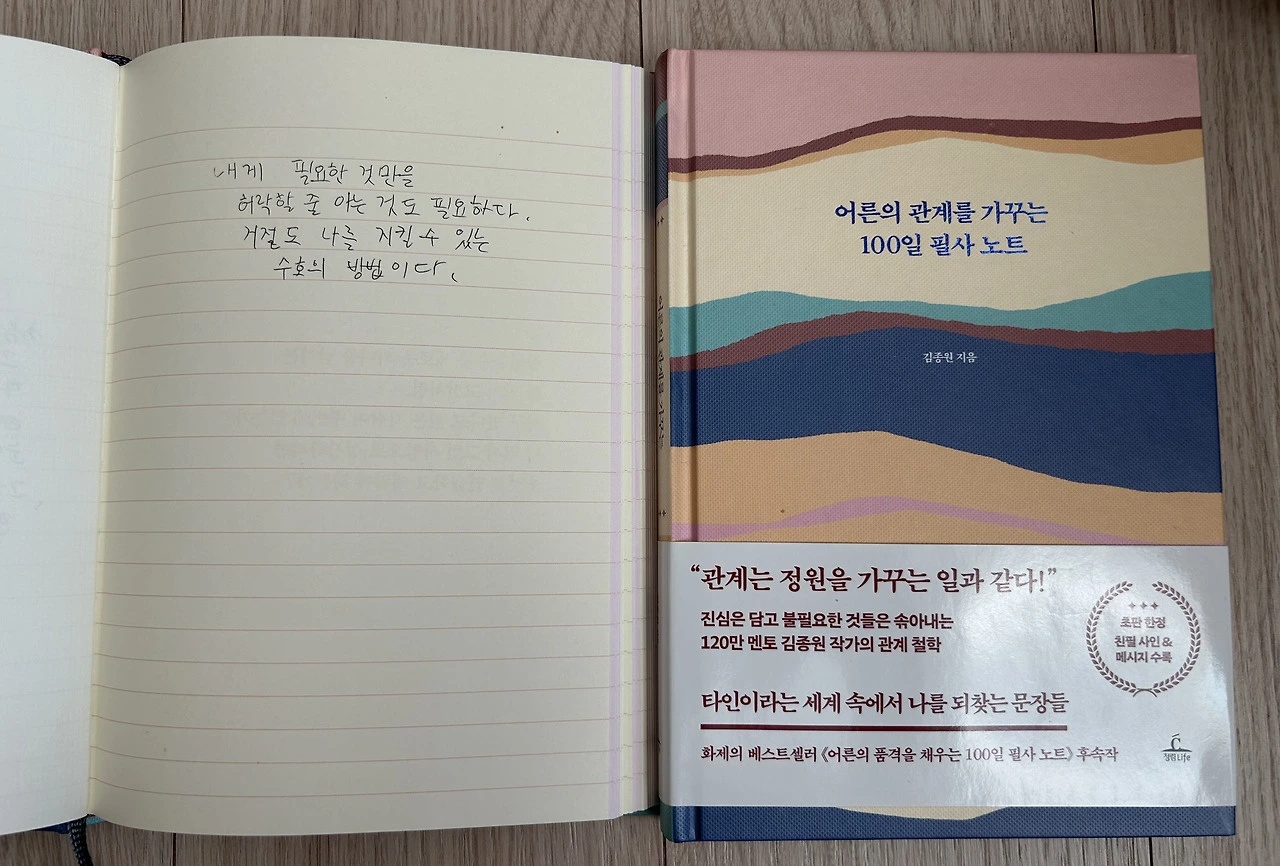 내게 필요한 것만을
허락할 줄 아는 것도 필요하다.
거절도 나를 지킬 수 있는
수호의 방법이다.
어른의 관계를 가꾸는
100일 필사 노트
김종원 지음
어른의 관계를 가꾸는
“관계는 정원을 가꾸는 일과 같다!”
진심은 담고 불필요한 것들은 솎아내는
120만 멘토 김종원 작가의 관계 철학
초판 한정
친필 사인 &
메시지 수록
타인이라는 세계 속에서 나를 되찾는 문장들
화제의 베스트셀러 《어른의 품격을 채우는 100일 필사 노트》 후속작
청림Life